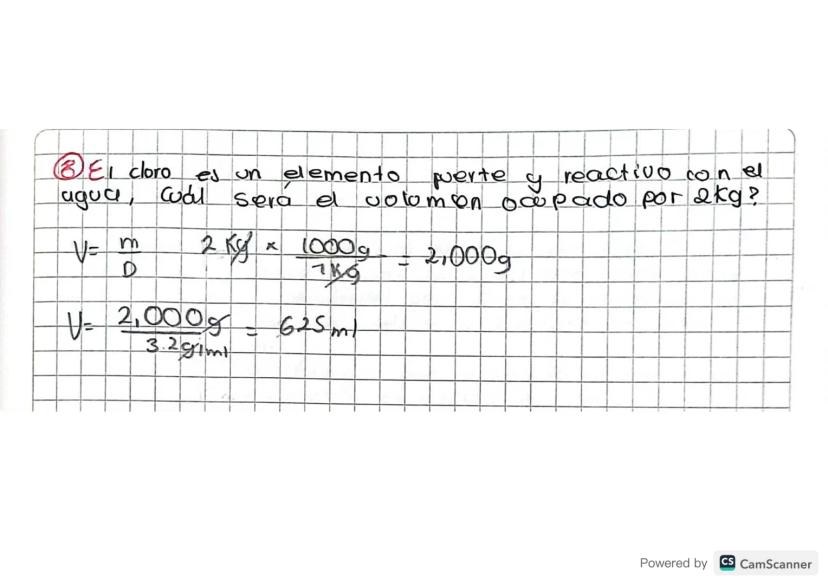 ⑧ El cloro es un elemento fuerte y reactivo con el
agua, cuál será el volumen ocupado por 2kg?
V= m/D 2 Kg × 1000g/1Kg = 2,000g
V= 2,000g/3.2g/ml = 625ml
Powered by CS CamScanner